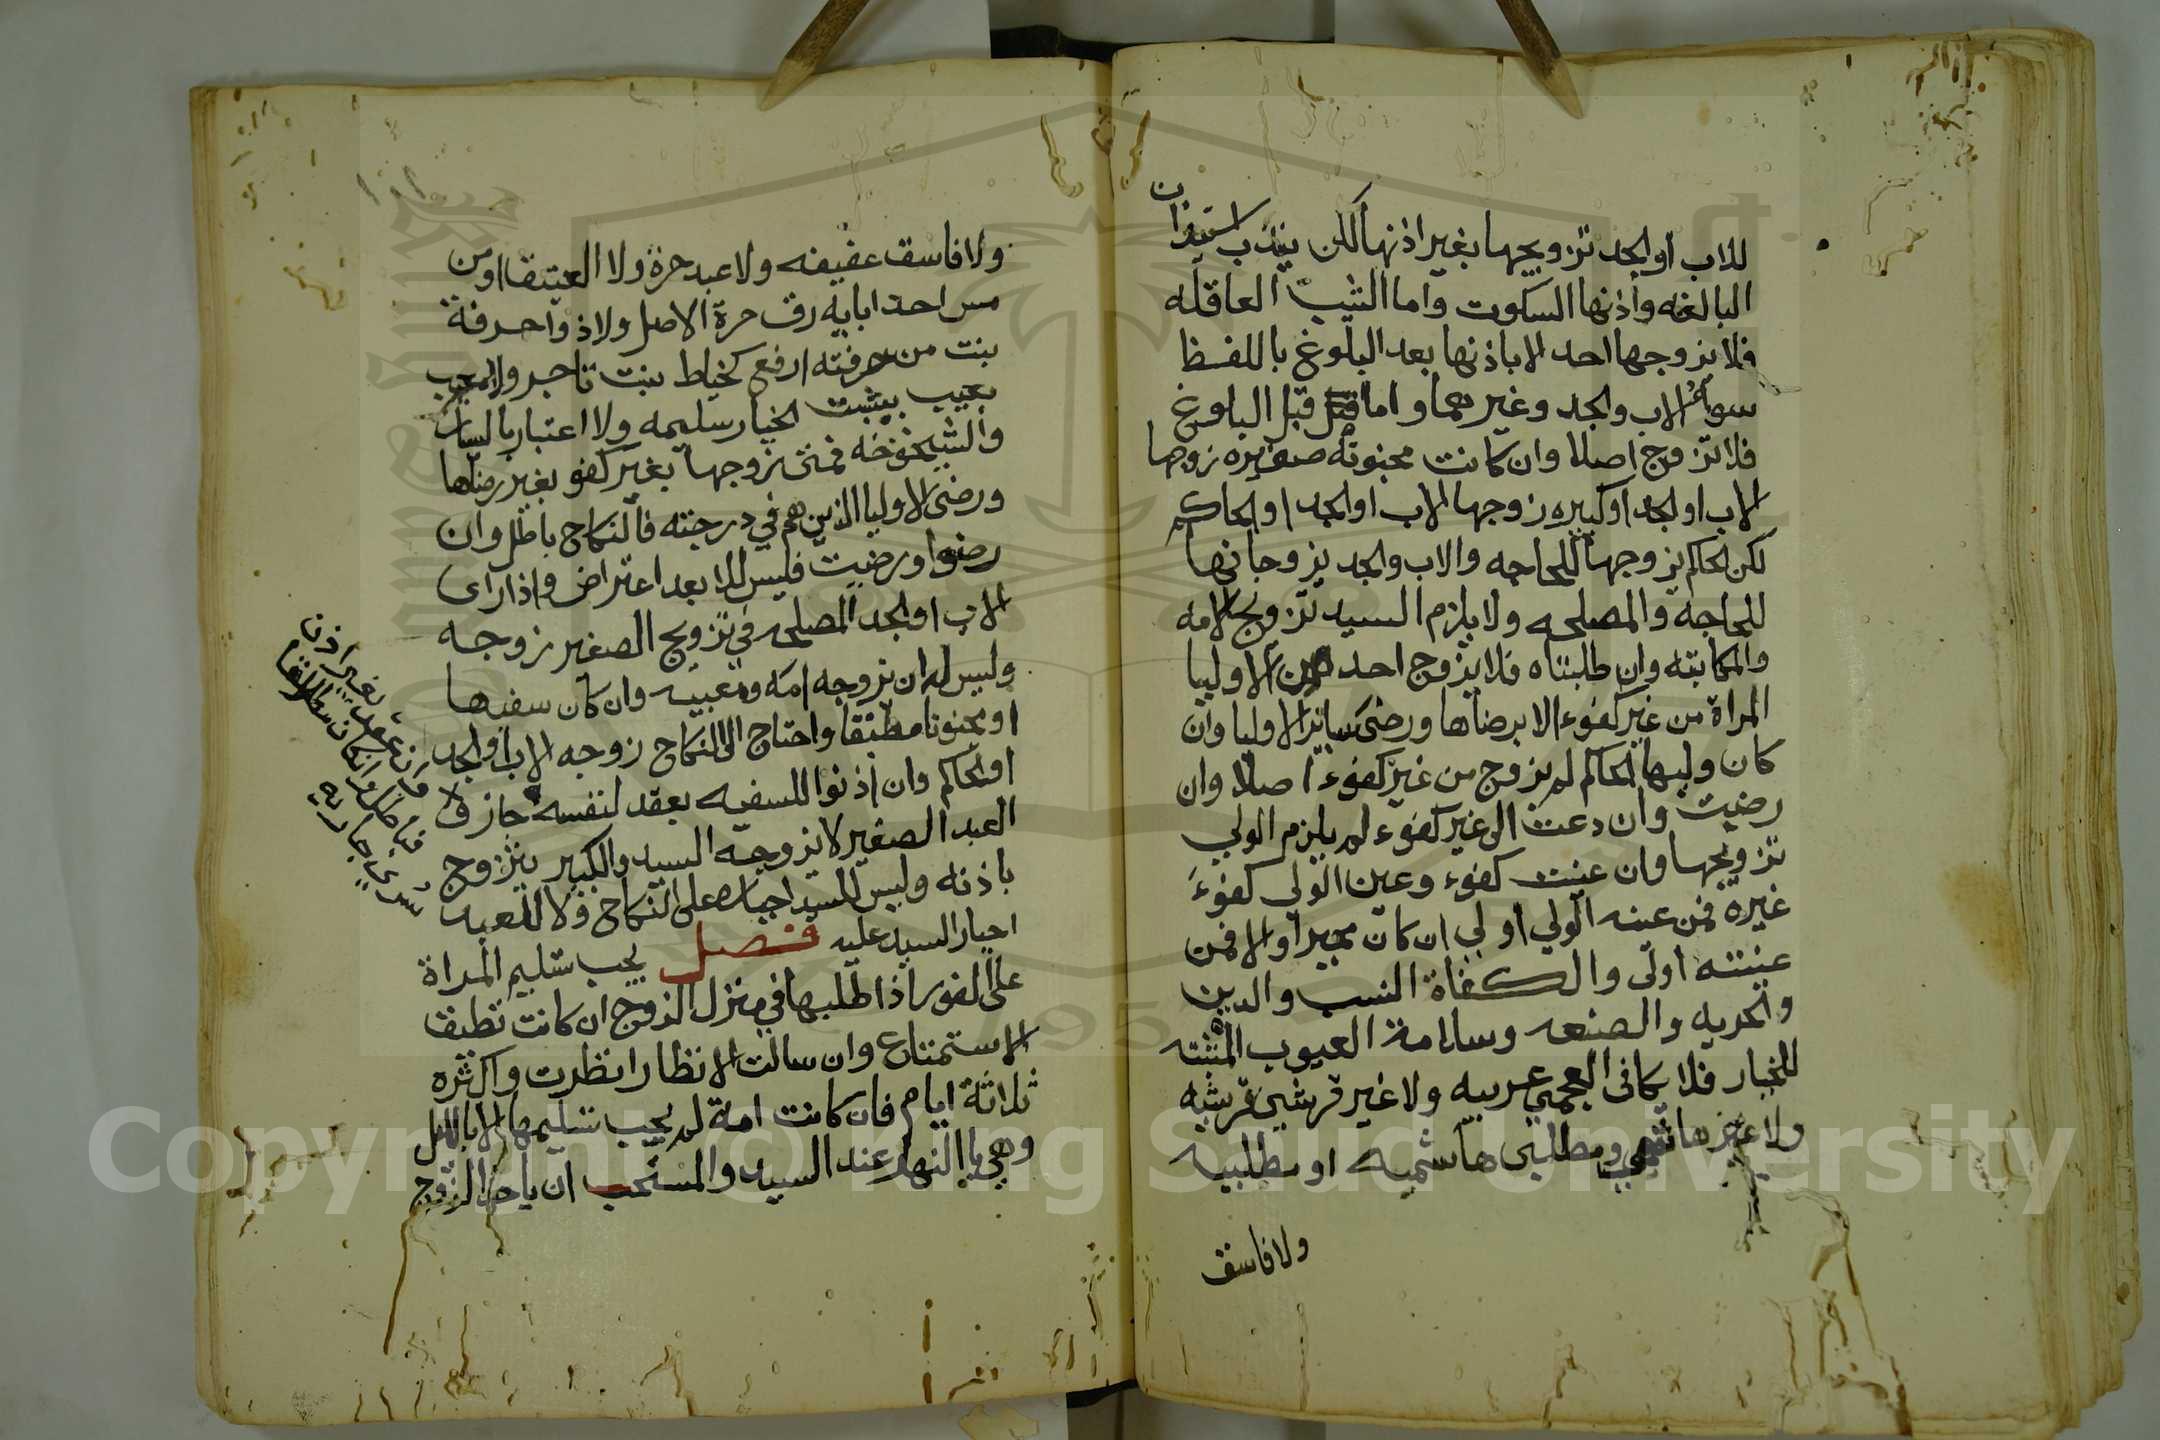 للاب او الجد تزويجها بغير اذنها لكن يندب استيذان
البالغه واذنها السكوت واما الثيب العاقله
فلا يزوجها احد الا باذنها بعد البلوغ باللفظ
سواء الاب والجد وغيرهما واما قبل البلوغ
فلا تزوج اصلا وان كانت مجنونه صغيره زوجها
الاب او الجد او كبيره زوجها الاب او الجد او الحاكم
لكن الحاكم يزوجها للحاجه والاب والجد يزوجانها
للحاجه والمصلحه ولا يلزم السيد تزويج الامه
والمكاتبه وان طلبتاه فلا يزوج احد من الاوليا
المراة من غير كفوء الا برضاها ورضى ساير الاوليا وان
كان وليها الحاكم لم يزوج من غير كفوء اصلا وان
رضيت وان دعت الى غير كفوء لم يلزم الولي
تزويجها وان عينت كفوء وعين الولي كفوء
غيره فمن عينه الولي اولي ان كان مجبرا والا فمن
عينته اولى والكفاة النسب والدين
والحريه والصنعه وسلامة العيوب المثبته
للخيار فلا يكافى العجمي عربيه ولا غير قرشي قرشيه
ولا غير هاشمي ومطلبي هاشميه او مطلبيه
ولا فاسق
ولا فاسق عفيفه ولا عبد حرة ولا العتيق او من
مس احد ابايه رق حرة الاصل ولا ذو احرفة
بنت من حرفته ارفع كخياط بنت تاجر ولا معيب
بعيب يثبت الخيار سليمه ولا اعتبار باليسار
والشيخوخه فمتى زوجها بغير كفو بغير رضاها
ورضى الاوليا الذين هم في درجته فالنكاح باطل وان
رضوا ورضيت فليس للابعد اعتراض واذا راى
الاب او الجد المصلحه في تزويج الصغير زوجه
وليس له ان يزوجه امة ومعيبه وان كان سفيها
او مجنونا مطبقا واحتاج الى النكاح زوجه الاب او الجد
او الحاكم وان اذنوا للسفيه يعقد لنفسه جاز و
العبد الصغير لا يزوجه السيد والكبير يتزوج
باذنه وليس للسيد اجباره على النكاح ولا للعبد
اجبار السيد عليه فصل يجب تسليم المراة
على الفور اذا طلبها في منزل الزوج ان كانت تطيق
الاستمتاع وان سالت الانظار انظرت واكثره
ثلاثة ايام فان كانت امة لم يجب تسليمها الا بالليل
وهي بالنهار عند السيد والمستحب ان ياخذ الزوج
بغير اذن
فان عقد
فباطل وان كان مطلاقا
سري جاريه